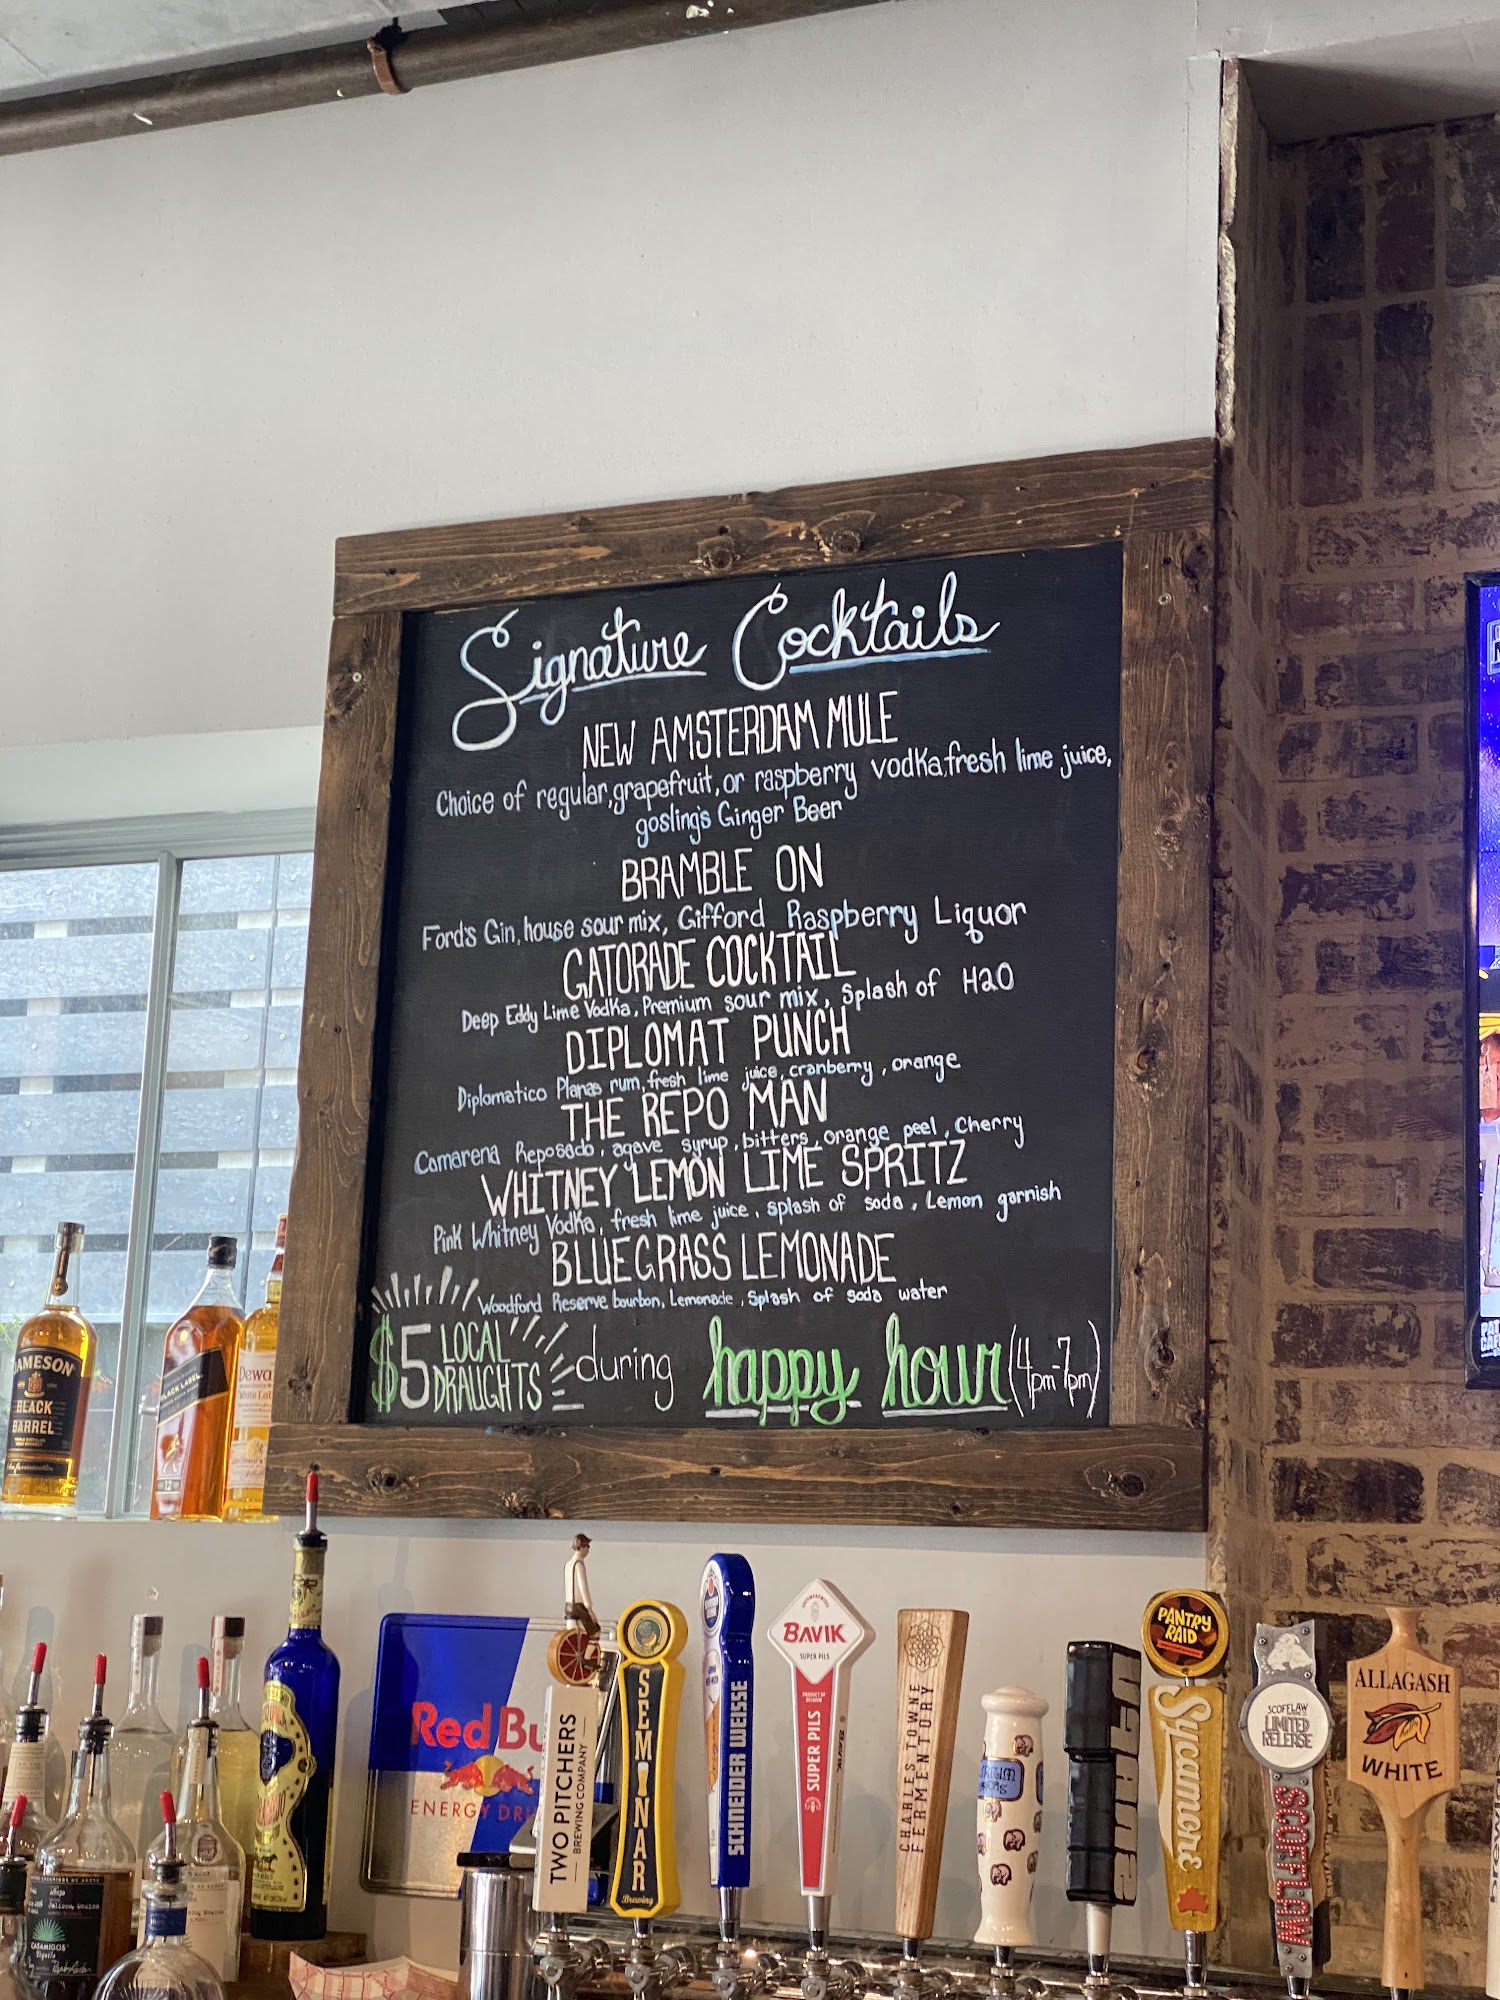 Signature Cocktails
NEW AMSTERDAM MULE
Choice of regular, grapefruit, or raspberry vodka, fresh lime juice,
goslings Ginger Beer
BRAMBLE ON
Ford's Gin, house sour mix, Gifford Raspberry Liquor
GATORADE COCKTAIL
Deep Eddy Lime Vodka, Premium sour mix, Splash of H2O
DIPLOMAT PUNCH
Diplomatico Planas rum, fresh lime juice, cranberry, orange
THE REPO MAN
Camarena Reposado, agave syrup, bitters, orange peel, Cherry
WHITNEY LEMON LIME SPRITZ
Pink Whitney Vodka, fresh lime juice, splash of soda, Lemon garnish
BLUEGRASS LEMONADE
Woodford Reserve bourbon, Lemonade, Splash of soda water
$5 LOCAL DRAUGHTS during happy hour (4pm-7pm)
JAMESON
BLACK
BARREL
BLACK LABEL
12
Dewa
White Lab
Red Bu
ENERGY DRI
TWO PITCHERS
BREWING COMPANY
SEMINAR
Brewing
SCHNEIDER WEISSE
BAVIK
SUPER PILS
SUPER PILS
CHARLES TOWNE
FERMENTORY
PANTRY
RAID
Sycamore
SCOFFLAW
LIMITED
RELEASE
SCOFFLAW
ALLAGASH
WHITE
CASAMIGOS
Tequila
añejo
Jalisco, Mexico